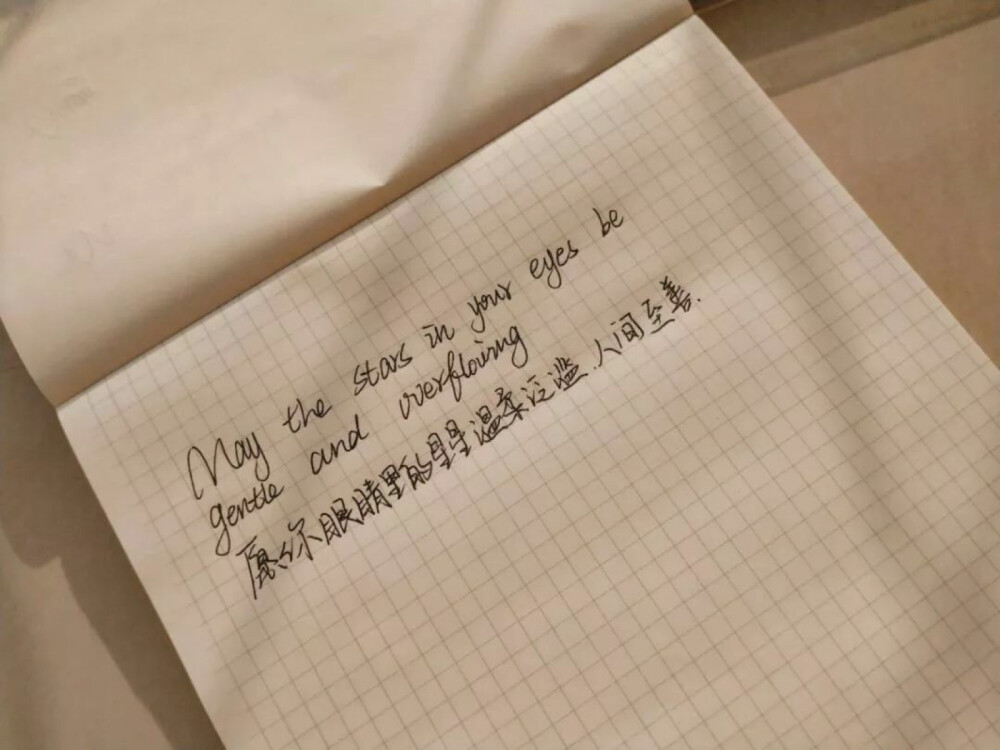 May the stars in your eyes be
gentle and overflowing
愿你眼睛里的星星温柔泛滥.人间至善.